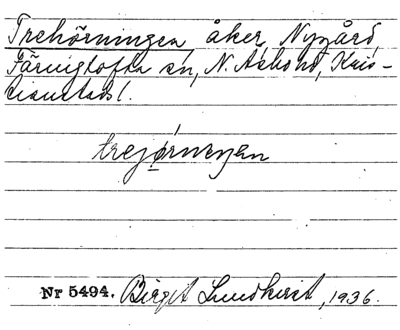 Trehörningen åker, Nygård,
Färingtofta sn, N. Åsbo hd, Kris-
tianstads l.
trejørnınȩn
Nr 5494. Birgit Lundkvist, 1936.